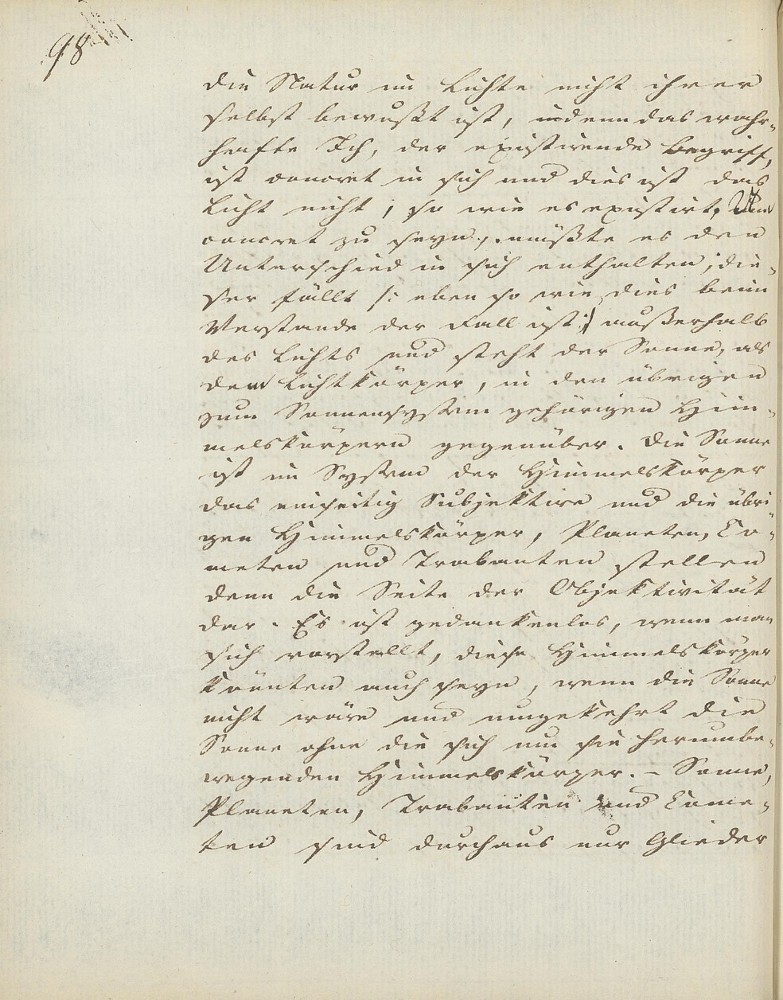 98
die Natur im Lichte nicht ihrer
selbst bewußt ist, indem das wahr-
hafte Ich, der existirende Begriff,
ist concret in sich und dies ist das
Licht nicht, so wie es existirt. Um
concret zu seyn, müßte es den
Unterschied in sich enthalten; die-
ser fällt /: eben so wie dies beim
Verstande der Fall ist :/ außerhalb
des Lichts und steht der Sonne, als
dem Lichtkörper, in den übrigen
zum Sonnensystem gehörigen Him-
melskörpern gegenüber. Die Sonne
ist im System der Himmelskörper
das einseitig Subjektive und die übri
gen Himmelskörper, Planeten, Co-
meten und Trabanten stellen
denn die Seite der Objektivität
dar. Es ist gedankenlos, wenn man
sich vorstellt, diese Himmelskörper
könnten auch seyn, wenn die Sonne
nicht wäre und umgekehrt die
Sonne ohne die sich um sie herumbe-
wegenden Himmelskörper. – Sonne,
Planeten, Trabanten und Come-
ten sind durchaus nur Glieder